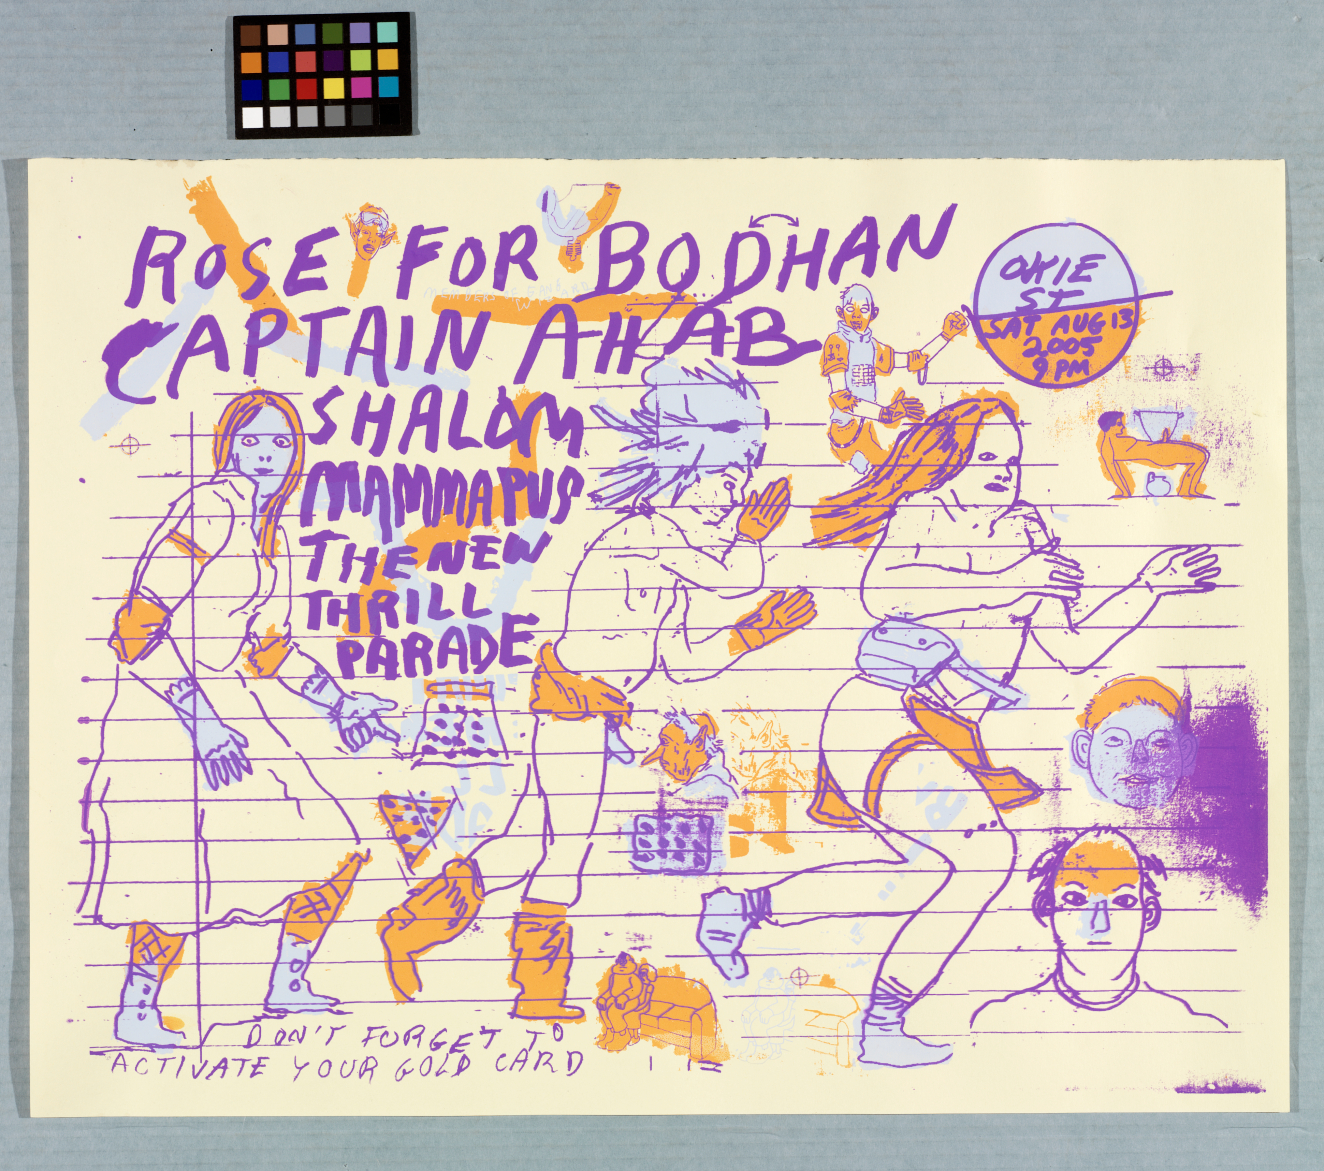 ROSE FOR BODHAN
CAPTAIN AHAB
SHALOM
MAMMAPUS
THE NEW
THRILL
PARADE
OKIE
ST
SAT AUG 13
2005
9 PM
DON'T FORGET TO
ACTIVATE YOUR GOLD CARD